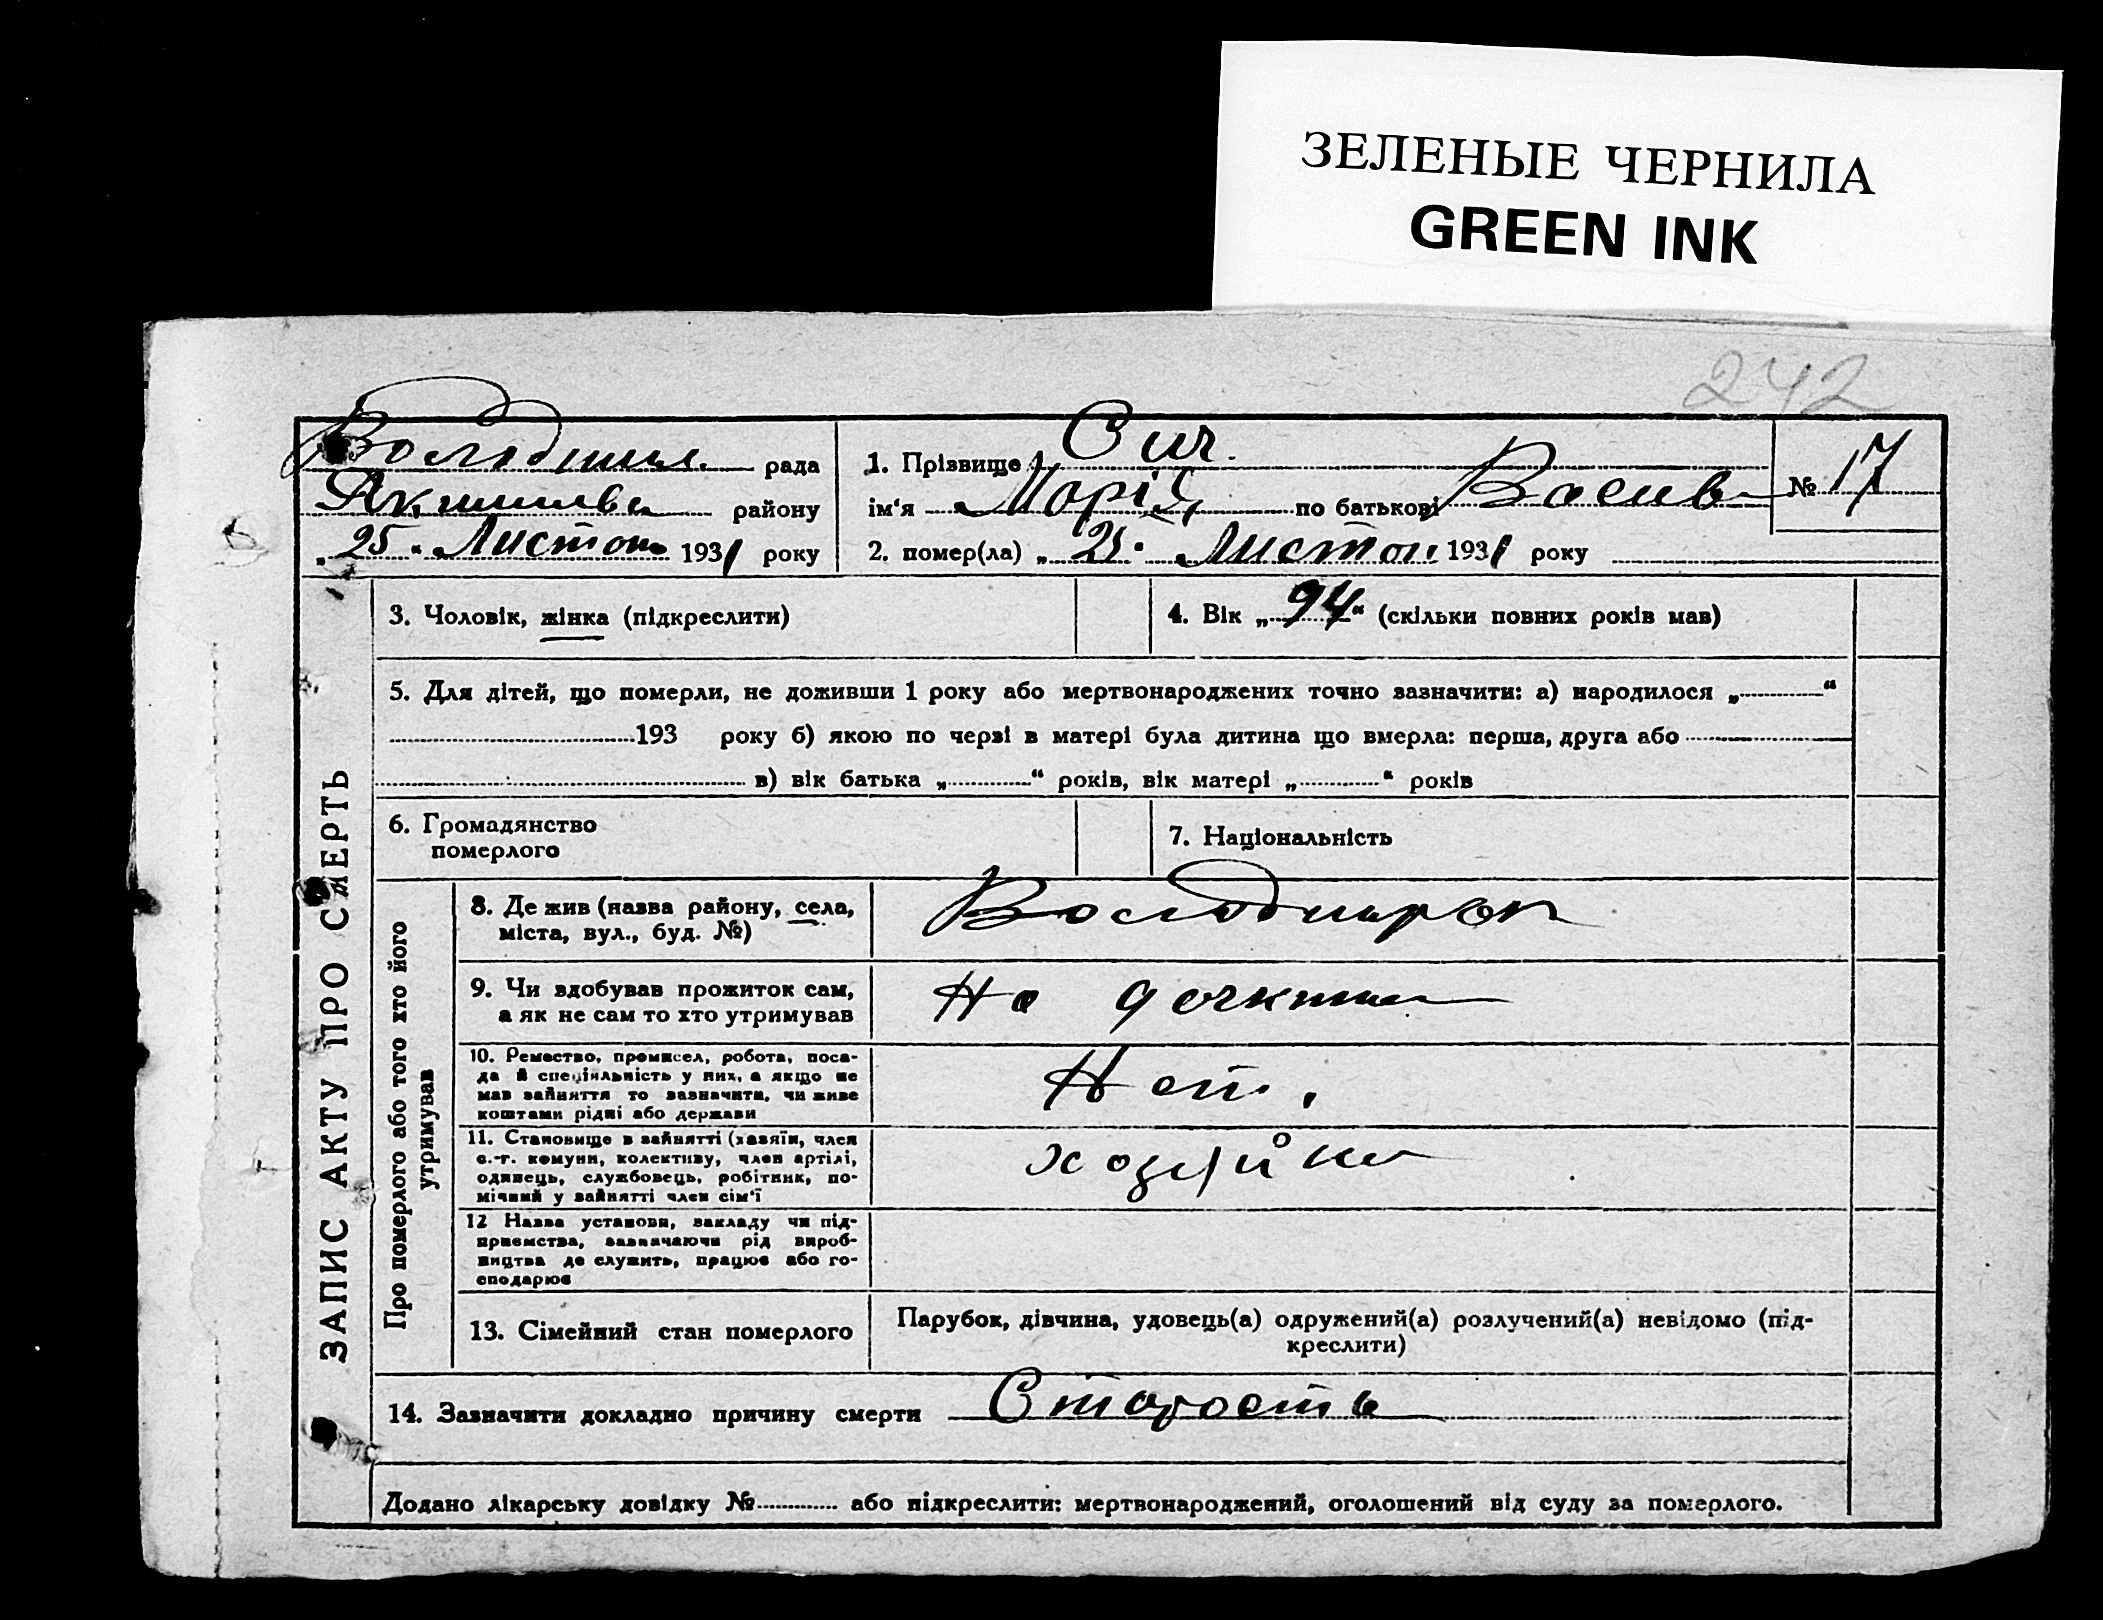 ЗЕЛЕНЫЕ ЧЕРНИЛА
GREEN INK
242
рада
району
„25“ Листоп 1931 року
1. Прізвище Сич
ім‘я Марія по батькові Васив
2. помер(ла) „25“ Листоп 1931 року
№ 17
ЗАПИС АКТУ ПРО СМЕРТЬ
3. Чоловік, жінка (підкреслити)
4. Вік „94“ (скільки повних років мав)
5. Для дітей, що померли, не доживши 1 року або мертвонароджених точно зазначити: а) народилося „ “
193 року б) якою по черзі в матері була дитина що вмерла: перша, друга або
в) вік батька „ “ років, вік матері „ “ років
6. Громадянство
померлого
7. Національність
Про померлого або того хто його
утримував
8. Де жив (назва району, села,
міста, вул., буд. №)
9. Чи здобував прожиток сам,
а як не сам то хто утримував
На
10. Ремество, промисел, робота, поса-
да й спеціяльність у них, а якщо не
мав зайняття то зазначити, чи живе
коштами рідні або держави
Нет.
11. Становище в зайнятті (хазяїн, член
с.-г. комуни, колективу, член артілі,
одинець, службовець, робітник, по-
мічний у зайнятті член сім‘ї
хозяйка
12 Назва установи, закладу чи під-
приємства, зазначаючи рід вироб-
ництва де служить, працює або го-
сподарює
13. Сімейний стан померлого
Парубок, дівчина, удовець(а) одружений(а) розлучений(а) невідомо (під-
креслити)
14. Зазначити докладно причину смерти Старость
Додано лікарську довідку № або підкреслити: мертвонароджений, оголошений від суду за померлого.